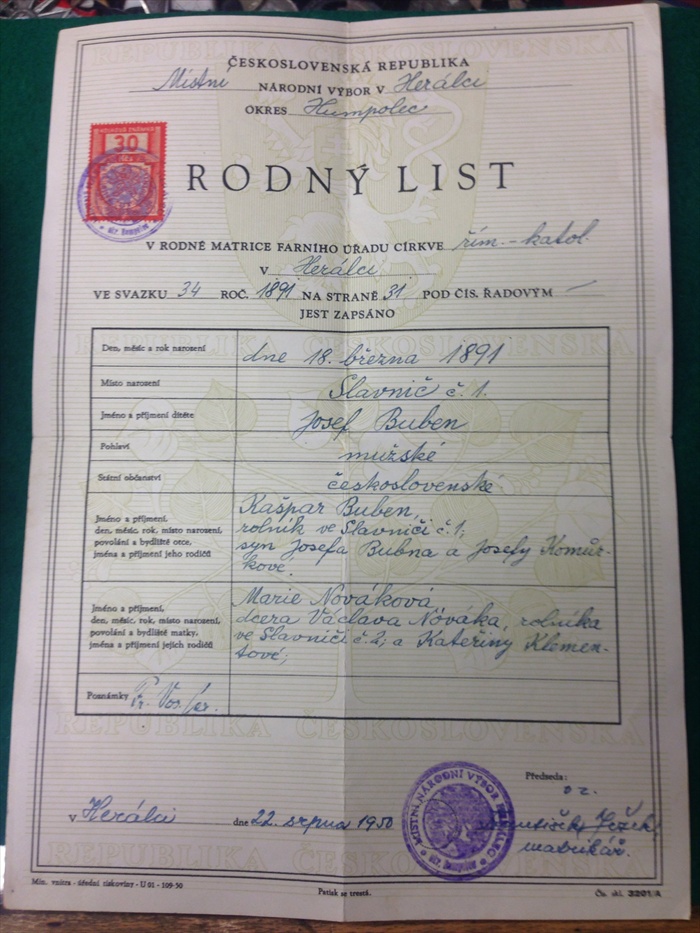 REPUBLIKA ČESKOSLOVENSKÁ
ČESKOSLOVENSKÁ REPUBLIKA
Místní NÁRODNÍ VÝBOR V Herálci
OKRES Humpolec
30
RODNÝ LIST
V RODNÉ MATRICE FARNÍHO ÚŘADU CÍRKVE řím.-katol.
V Herálci
VE SVAZKU 34 ROČ. 1891 NA STRANĚ 31 POD ČÍS. ŘADOVÝM —
JEST ZAPSÁNO
Den, měsíc a rok narození dne 18. března 1891
Místo narození Slavnič č. 1.
Jméno a příjmení dítěte Josef Buben
Pohlaví mužské
Státní občanství československé
Jméno a příjmení,
den, měsíc, rok, místo narození,
povolání a bydliště otce,
jména a příjmení jeho rodičů
Kašpar Buben,
rolník ve Slavniči č. 1;
syn Josefa Bubna a Josefy Komůr-
kové.
Jméno a příjmení,
den, měsíc, rok, místo narození,
povolání a bydliště matky,
jména a příjmení jejích rodičů
Marie Nováková
dcera Václava Nováka, rolníka
ve Slavniči č. 2; a Kateřiny Klemen-
tové;
Poznámky
REPUBLIKA ČESKOSLOVENSKÁ
Předseda:
V Herálci dne 22. srpna 1950
MÍSTNÍ NÁRODNÍ VÝBOR
Ježek
matrikář.
REPUBLIKA ČESKOSLOVENSKÁ
Min. vnitra - úřední tiskoviny - U 01 - 109-50
Padělek se trestá.
Čs. skl. 3201/A